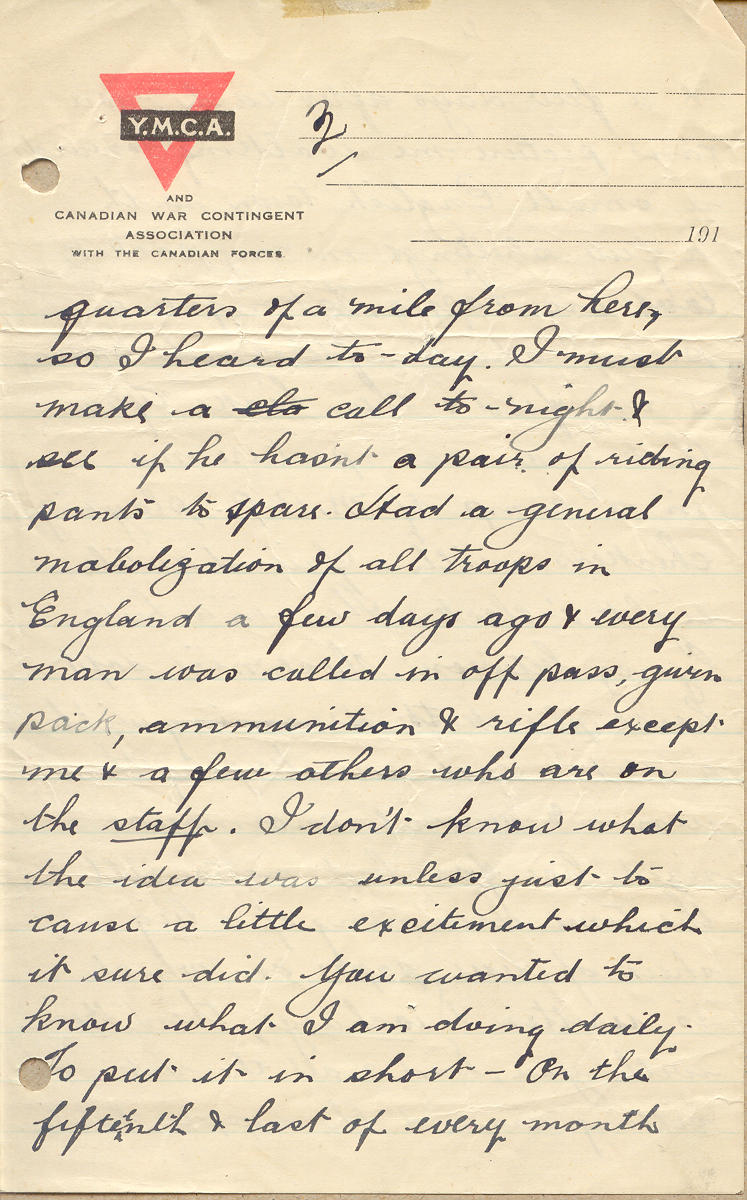 Y.M.C.A.
AND
CANADIAN WAR CONTINGENT
ASSOCIATION
WITH THE CANADIAN FORCES.
3
191
quarters of a mile from here,
so I heard to-day. I must
make a clo call to-night &
see if he hasn't a pair of riding
pants to spare. Had a general
mabolization of all troops in
England a few days ago & every
man was called in off pass, given
pack, ammunition & rifle except
me & a few others who are on
the staff. I don't know what
the idea was unless just to
cause a little excitement which
it sure did. You wanted to
know what I am doing daily.
To put it in short - On the
fifteenth & last of every month